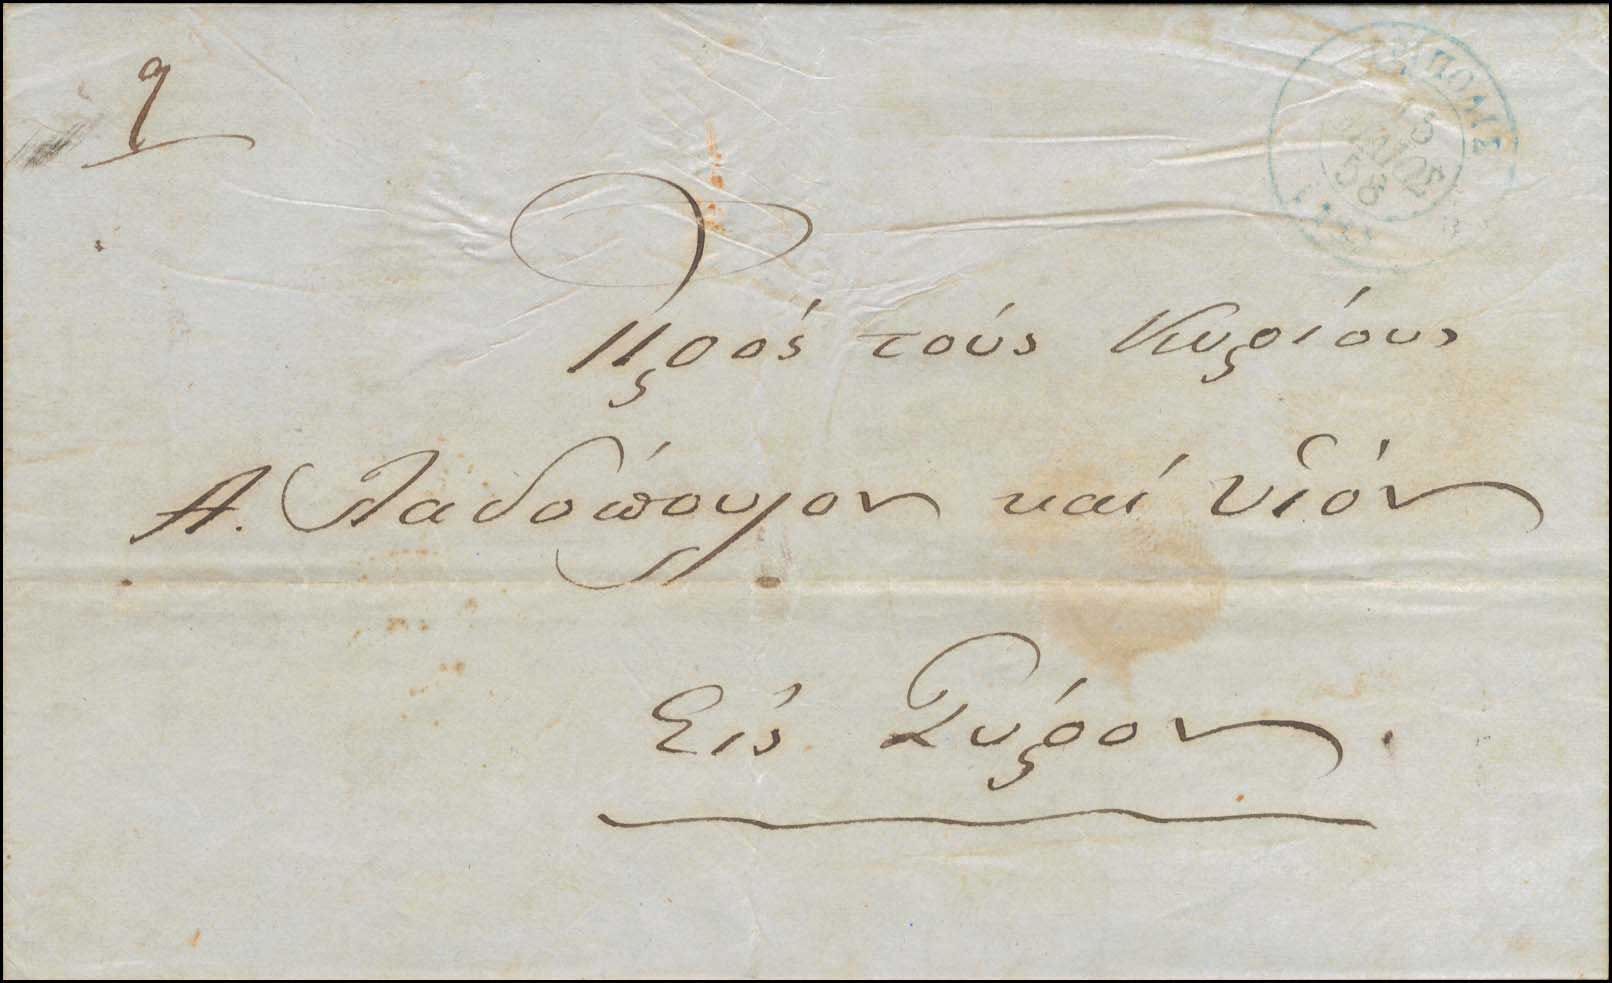 9
15
ΜΑΙΟΣ
58
Πρός τούς Κυρίους
Α. Λαδόπουλον καί Υἱόν
Εἰς Σύρον